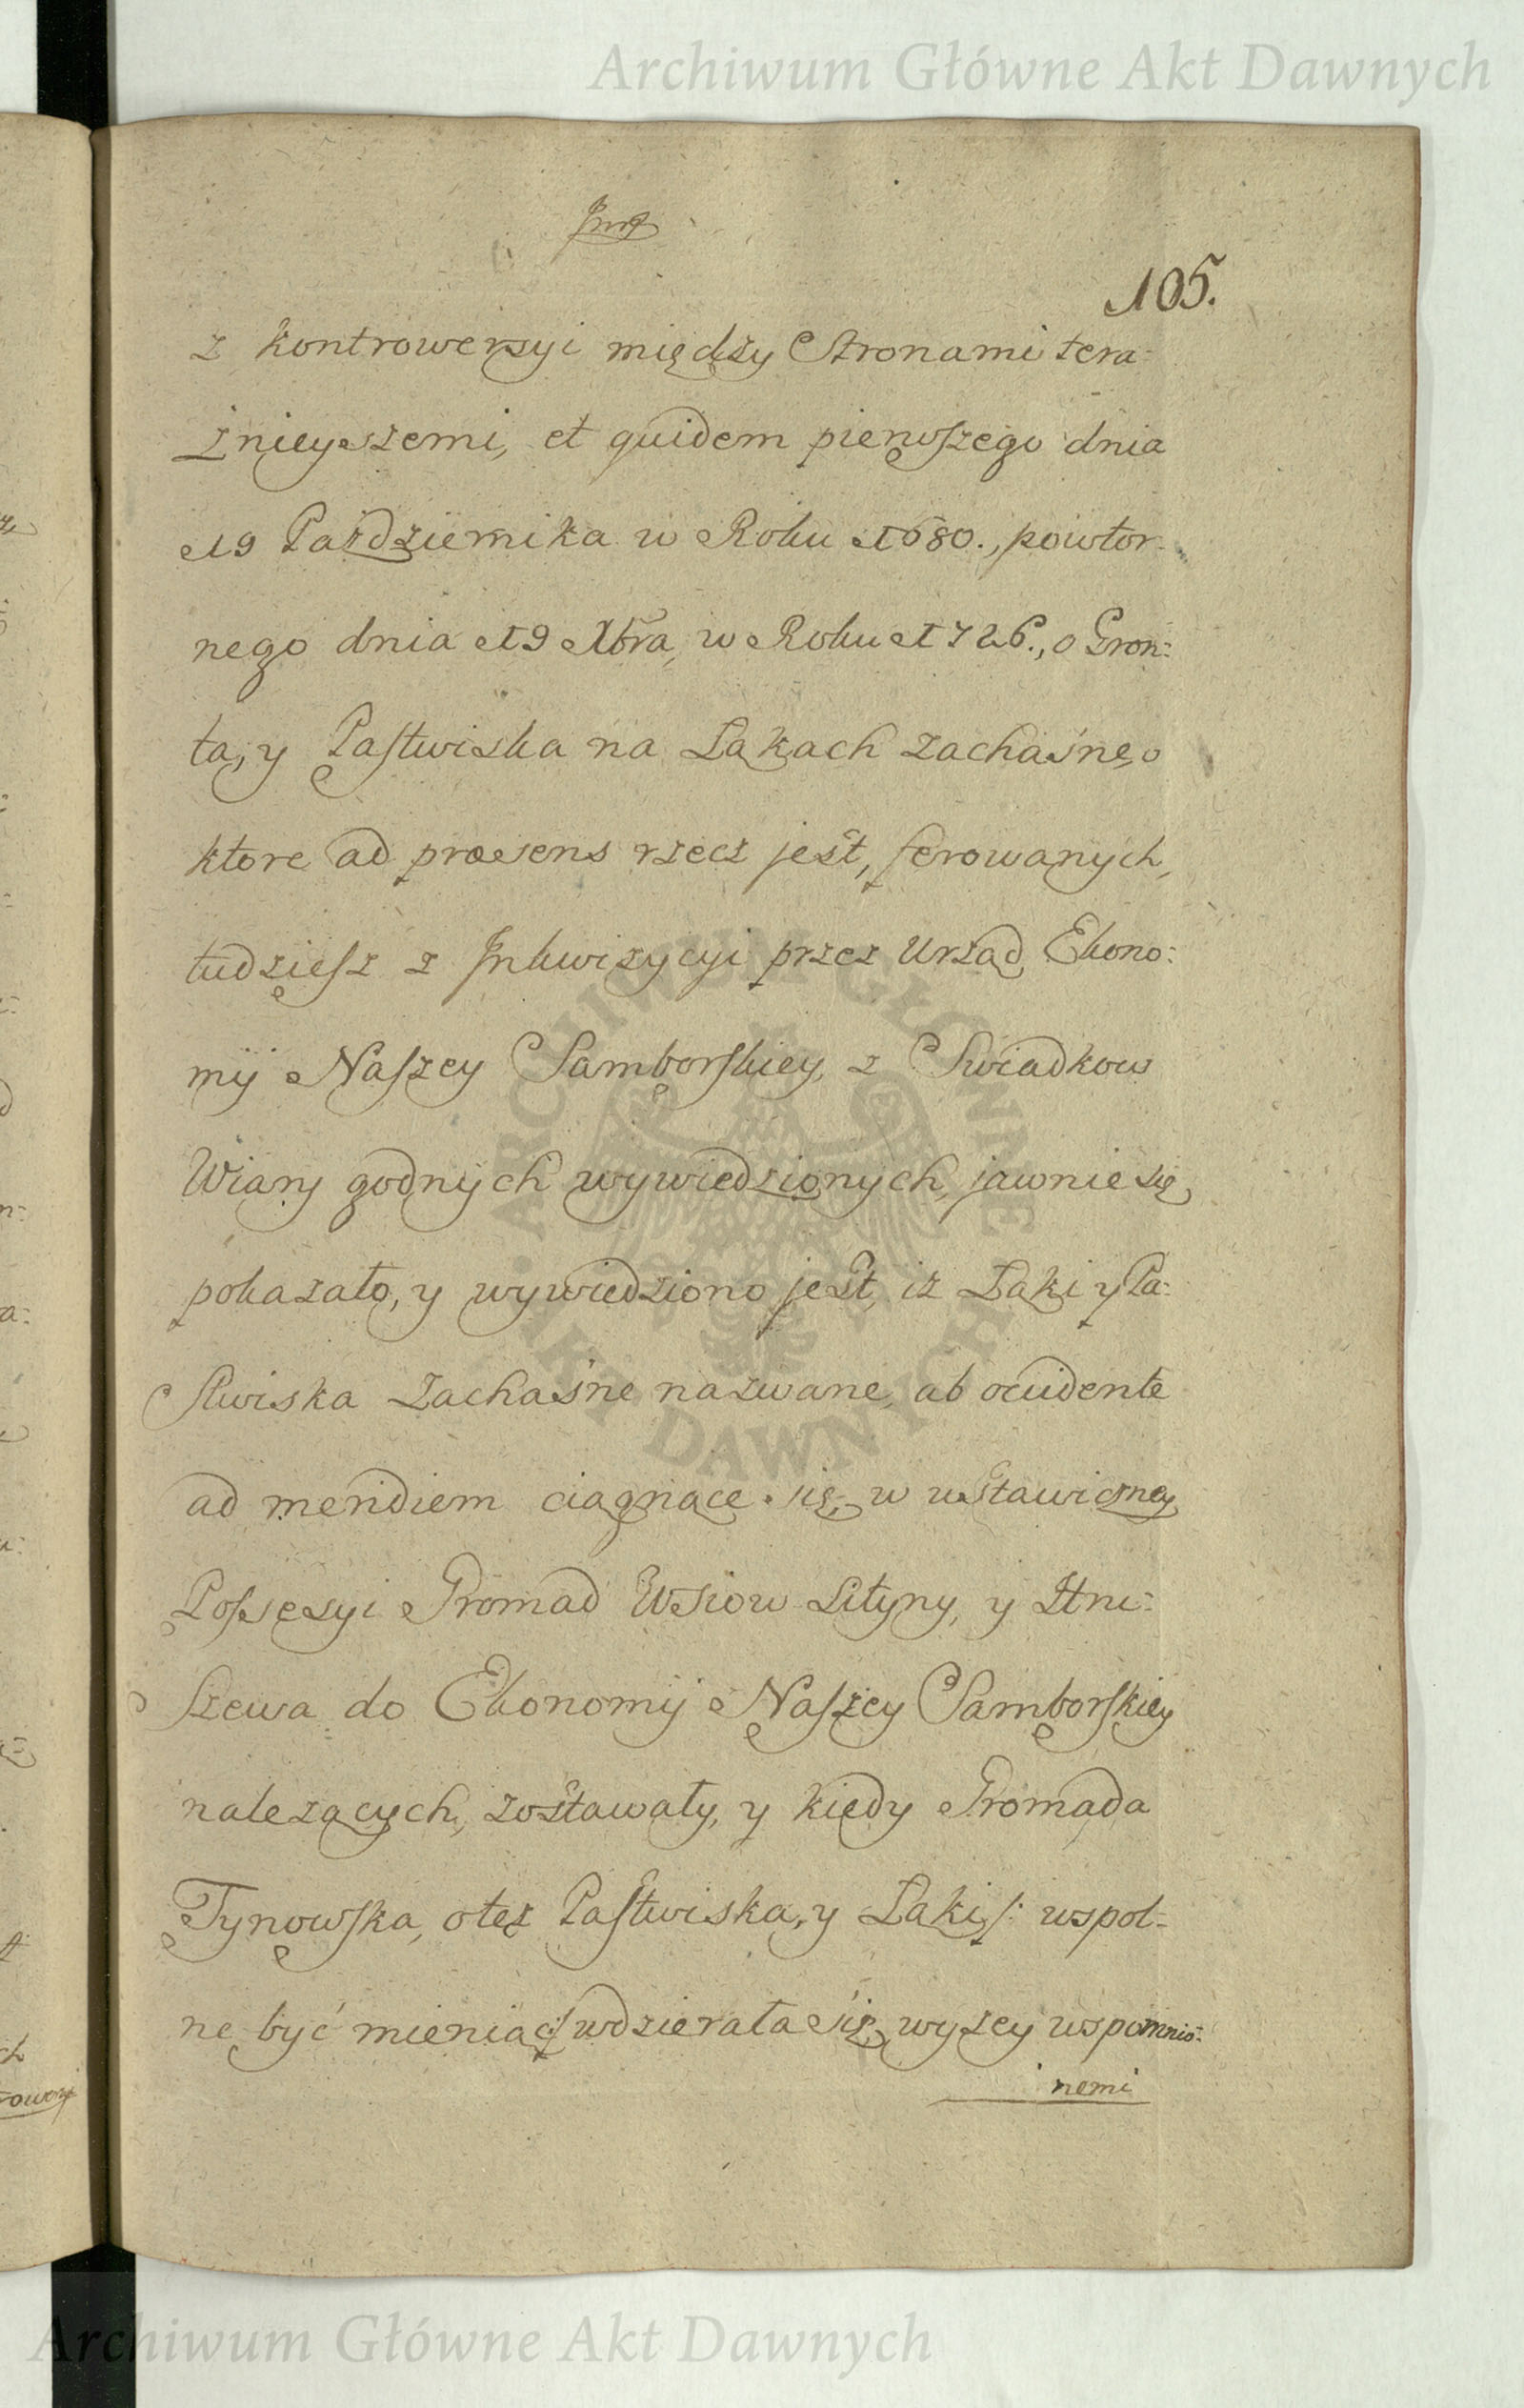 Archiwum Główne Akt Dawnych
105.
z kontrowersyi między Stronami tera=
źnieyszemi, et quidem pierwszego dnia
19 Października w Roku 1680., powtor=
nego dnia 19 Xbra, w Roku 1726., o Gron=
ta, y Pastwiska na Łąkach Zachaśne, o
ktore ad præsens rzecz jest, ferowanych,
tudziesz z Jnkwizycyi przez Urząd Ekono=
mij Naszey Samborskiey, z Swiadkow
Wiary godnych wywiedzionych, jawnie się
pokazało, y wywiedziono jest, iż Łąki y Pa=
stwiska Zachaśne nazwane, ab occidente
ad meridiem ciągnące się, w ustawiczney
Possesyi Gromad Wsiow Lityny, y
szewa do Ekonomij Naszey Samborskiey
należących, zostawały, y kiedy Gromada
Tynowska, otez Pastwiska, y Łąki /: wspol=
ne być mieniąc :/ wdzierała się, wyżey wspomnio=
nemi
ARCHIWUM GŁÓWNE AKT DAWNYCH
Archiwum Główne Akt Dawnych